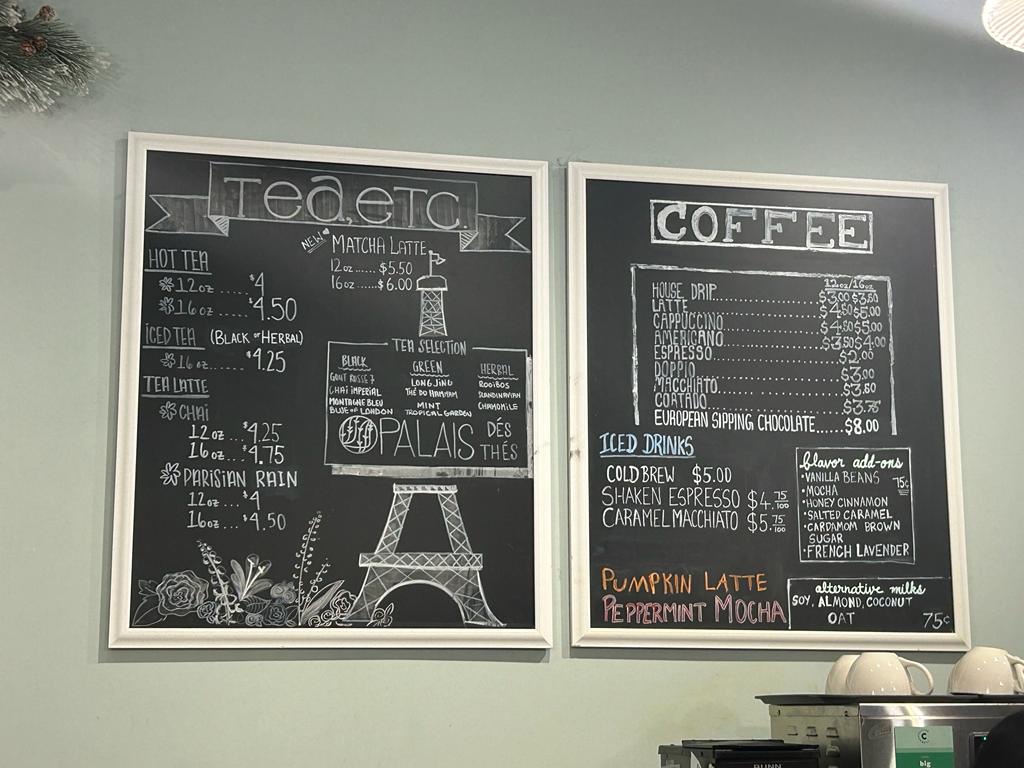 Tea, etc.
HOT TEA
12oz ..... $4
16oz ..... $4.50
ICED TEA (BLACK or HERBAL)
16oz ..... $4.25
TEA LATTE
CHAI
12oz ... $4.25
16oz ... $4.75
PARISIAN RAIN
12oz ... $4
16oz ... $4.50
NEW MATCHA LATTE
12oz ...... $5.50
16oz ...... $6.00
TEA SELECTION
BLACK
GOUT RUSSE 7
CHAI IMPERIAL
MONTAGNE BLEU
BLUE OF LONDON
GREEN
LONG JING
THÉ DU HAMMAM
MINT
TROPICAL GARDEN
HERBAL
ROOIBOS
SCANDINAVIAN
CHAMOMILE
PALAIS DÉS THÉS
COFFEE
12oz/16oz
HOUSE DRIP .......... $3.00 $3.50
LATTE .......... $4.50 $5.00
CAPPUCCINO .......... $4.50 $5.00
AMERICANO .......... $3.50 $4.00
ESPRESSO .......... $2.00
DOPPIO .......... $3.00
MACCHIATO .......... $3.50
COATADO .......... $3.75
EUROPEAN SIPPING CHOCOLATE ...... $8.00
ICED DRINKS
COLD BREW $5.00
SHAKEN ESPRESSO $4.75/100
CARAMEL MACCHIATO $5.75/100
flavor add-ons
•VANILLA BEANS 75¢
•MOCHA
•HONEY CINNAMON
•SALTED CARAMEL
•CARDAMOM BROWN
SUGAR
•FRENCH LAVENDER
PUMPKIN LATTE
PEPPERMINT MOCHA
alternative milks
SOY, ALMOND, COCONUT
OAT 75¢
BUNN
big